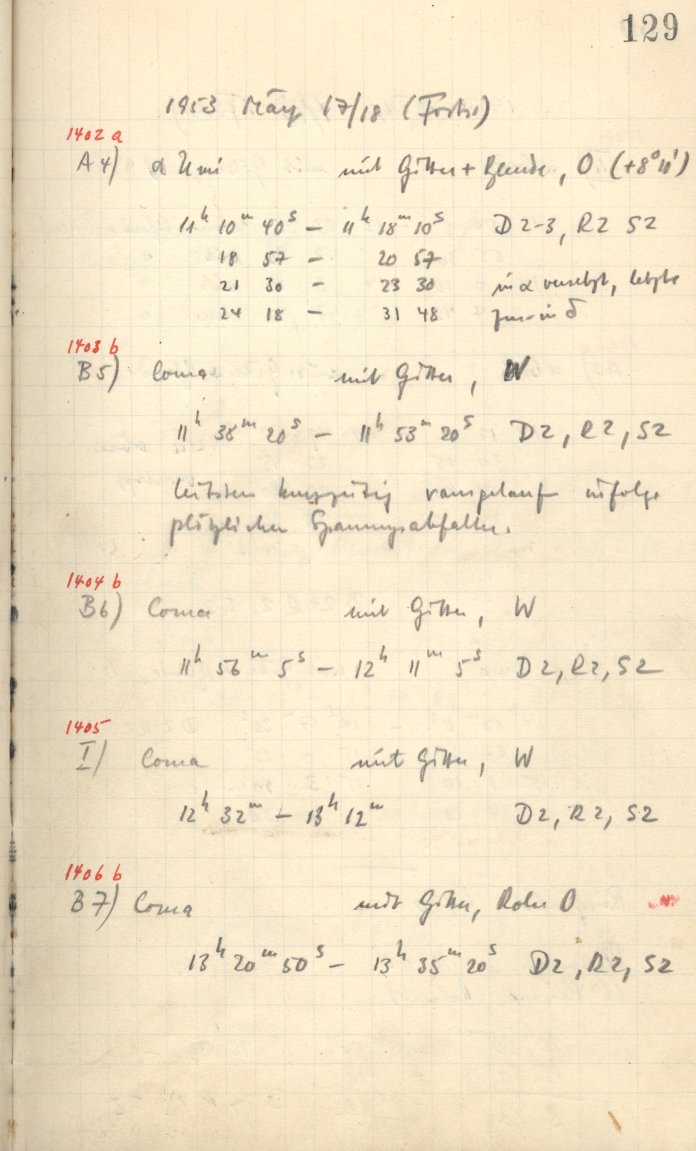 129
1953 März 17/18 (Forts.)
1402 a
A4) α Umi mit Gitter + Blende, O (+8°11')
11h 10m 40s – 11h 18m 10s D2-3, R2 S2
18 57 – 20 57
21 30 – 23 30 in α versetzt, letzte
24 18 – 31 48 in δ
1403 b
B5) Coma mit Gitter, W
11h 38m 20s – 11h 53m 20s D2, R2, S2
kurzzeitig infolge
plötzlichen Spannungsabfalles.
1404 b
B6) Coma mit Gitter, W
11h 56m 5s – 12h 11m 5s D2, R2, S2
1405
I) Coma mit Gitter, W
12h 32m – 13h 12m D2, R2, S2
1406 b
B7) Coma mit Gitter, Rohr O
13h 20m 50s – 13h 35m 20s D2, R2, S2